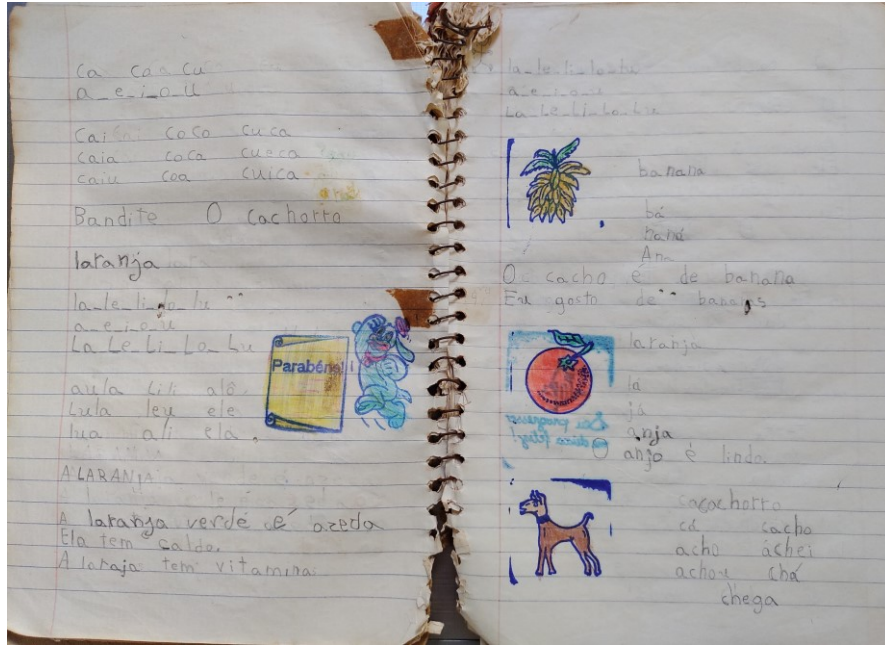 Ca Ca Cu
a_e_i_o_u
Cai coco cuca
caia coca cueca
caiu coa cuica
Bandite O cachorro
laranja
la_le_li_lo_lu
a_e_i_o_u
La_Le_Li_Lo_Lu
Parabéns!
aula Lili alô
Lula leu ele
lua ali ela.
A LARANJA
A laranja verde é azeda
Ela tem caldo.
A laraja tem vitamina
la_le_li_lo_lu
a_e_i_o_u
La_Le_Li_Lo_Lu
banana
bá
naná
O cacho é de banana
Eu gosto de bananas
laranja
lá
já
anja
O anjo é lindo.
cacachorro
cá cacho
acho achei
achou chá
chega